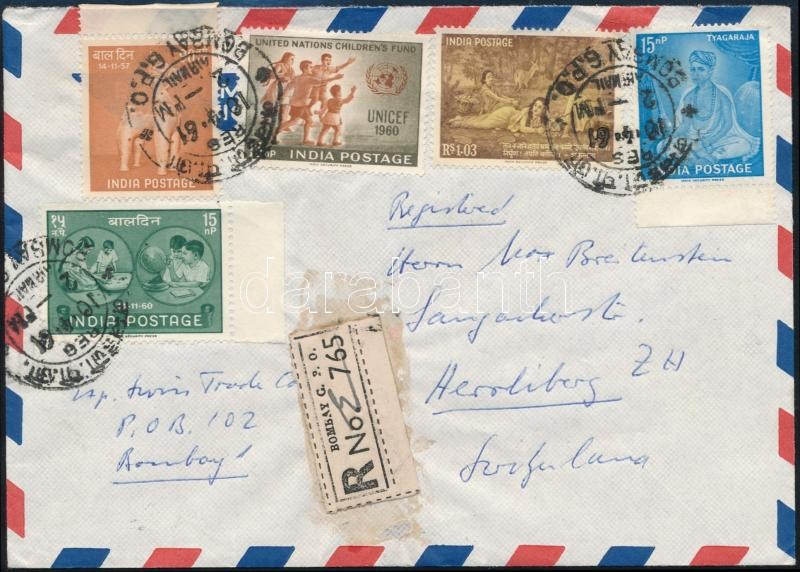 बाल दिन
14-11-57
INDIA POSTAGE
UNITED NATIONS CHILDREN'S FUND
UNICEF
1960
INDIA POSTAGE
INDIA POSTAGE
RS1-03
15nP
TYAGARAJA
INDIA POSTAGE
BOMBAY G.P.O.
AIRMAIL
1 PM
REG
१५
न.पै.
बालदिन
15
nP
INDIA POSTAGE
Registered
Herrn Max Breitenstein
Herrliberg ZH
Switzerland
BOMBAY G. P. O.
R No E 765
Swiss Trade Co
P.O.B. 102
Bombay 1
darabanth